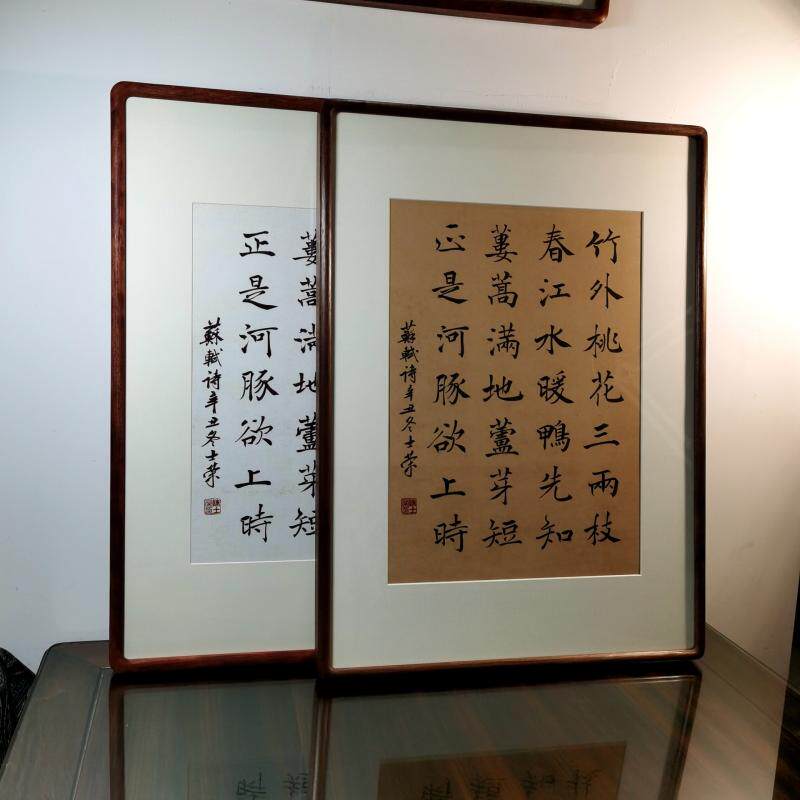 竹外桃花三兩枝
春江水暖鴨先知
蔞蒿滿地蘆芽短
正是河豚欲上時
蘇軾诗辛丑冬士荣
蔞蒿滿地蘆芽短
正是河豚欲上時
蘇軾诗辛丑冬士荣